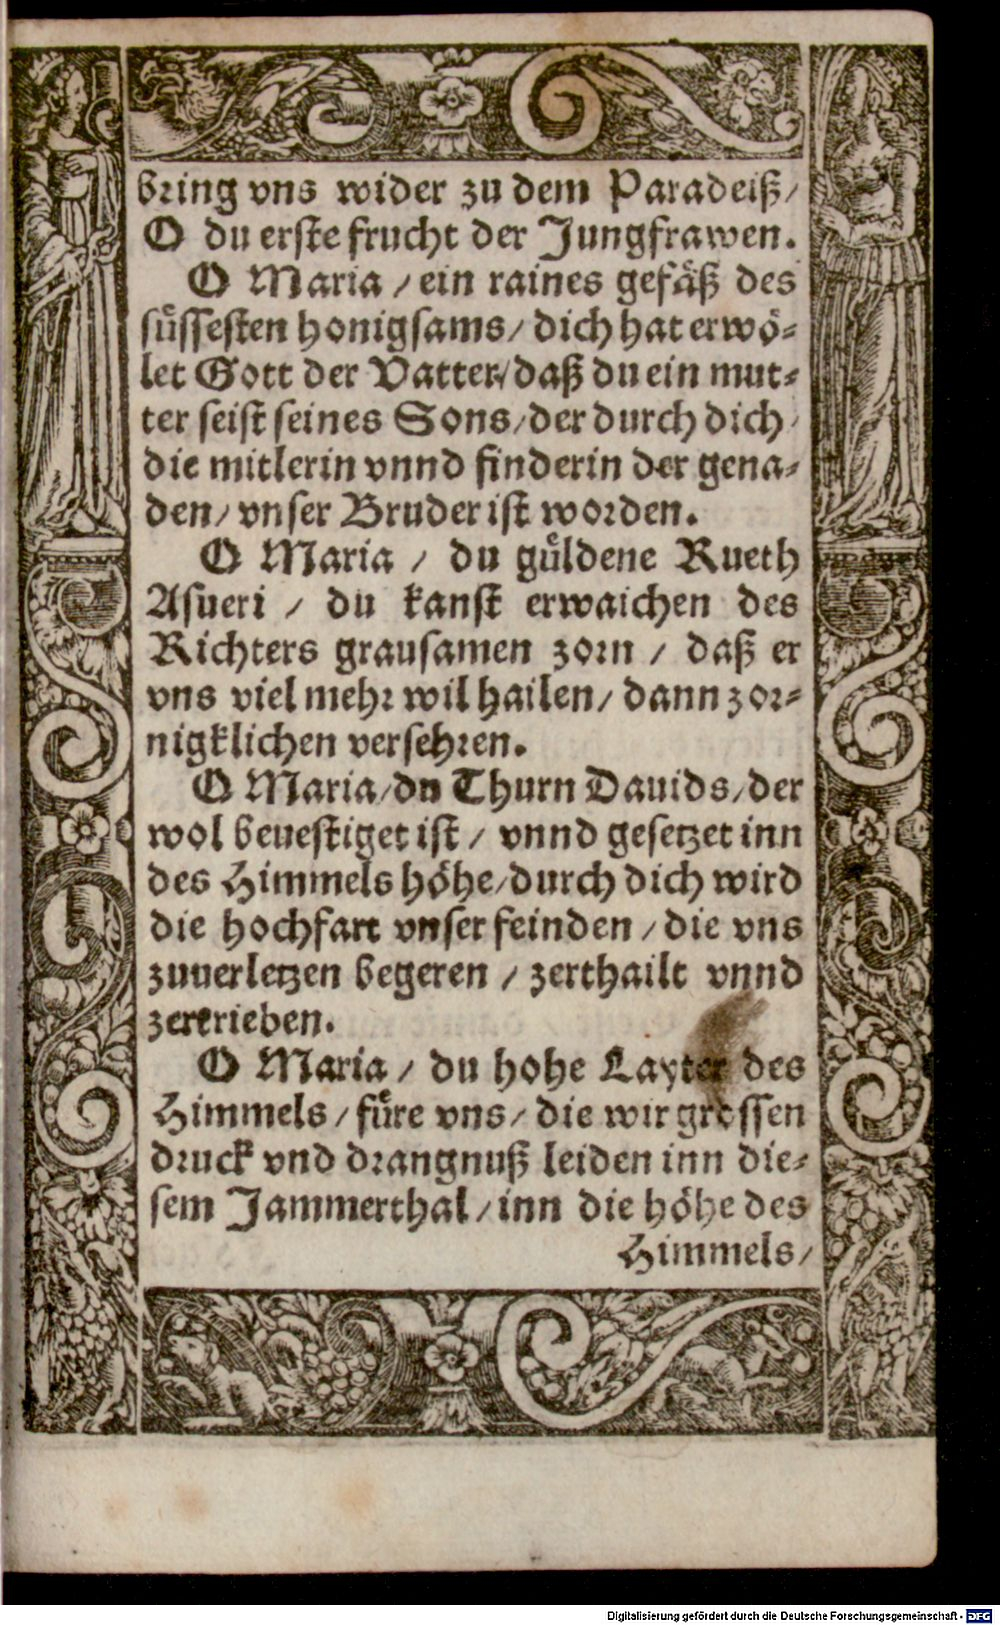 bring vns wider zu dem Paradeiß/
O du erste frucht der Jungfrawen.
O Maria / ein raines gefäß des
süssesten honigsams / dich hat erwö-
let Gott der Vatter / daß du ein mut-
ter seist seines Sons / der durch dich /
die mitlerin vnnd finderin der gena-
den / vnser Bruder ist worden.
O Maria / du güldene Rueth
Asueri / du kanst erwaichen des
Richters grausamen zorn / daß er
vns viel mehr wil hailen / dann zor-
nigklichen versehren.
O Maria / du Thurn Dauids / der
wol beuestiget ist / vnnd gesetzet inn
des Himmels höhe / durch dich wird
die hochfart vnser feinden / die vns
zuuerletzen begeren / zerthailt vnnd
zertrieben.
O Maria / du hohe Layter des
Himmels / füre vns / die wir grossen
druck vnd drangnuß leiden inn die-
sem Jammerthal / inn die höhe des
Himmels /
Digitalisierung gefördert durch die Deutsche Forschungsgemeinschaft - DFG